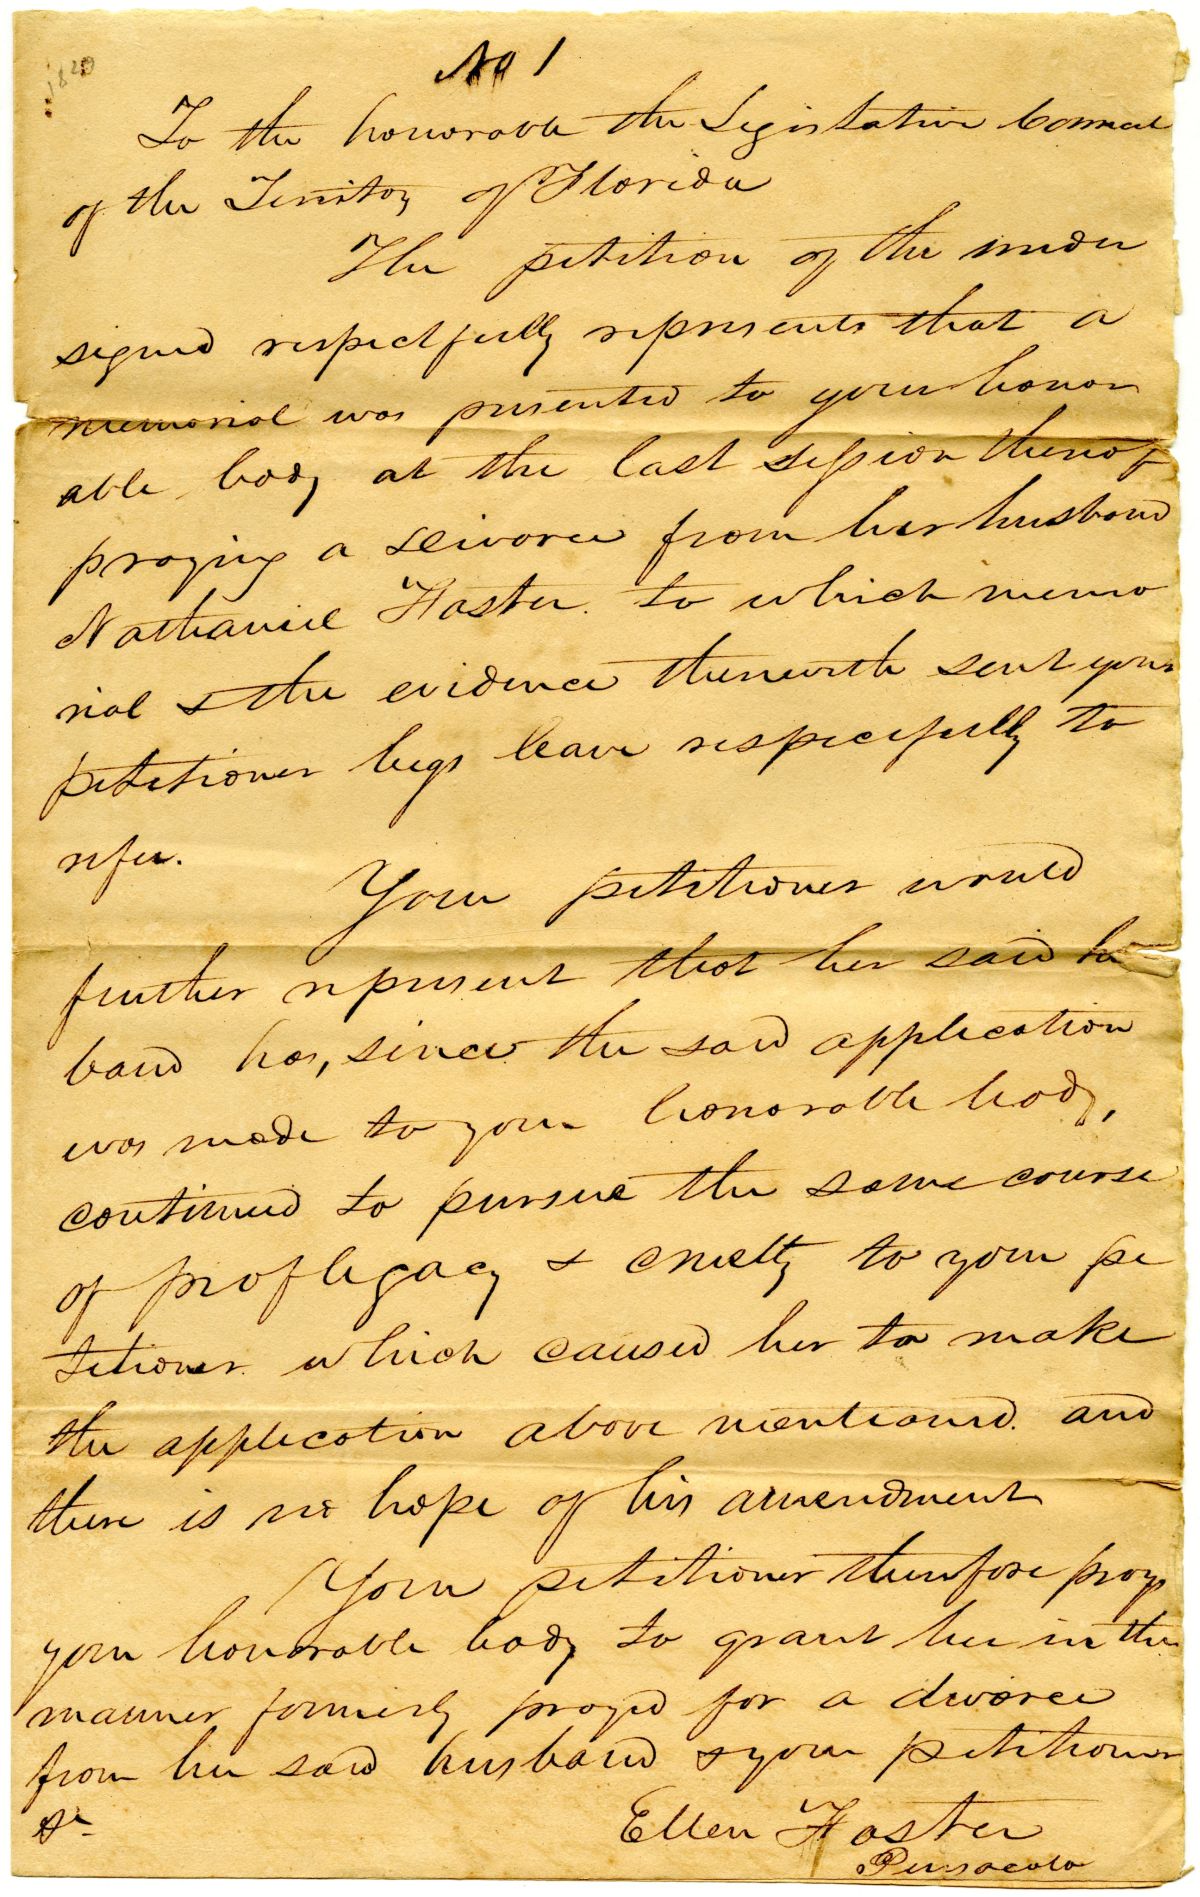 1829
No 1
To the honorable the Legislative Council
of the Territory of Florida
The petition of the under
signed respectfully represents that a
memorial was presented to your honor
able body at the last session thereof
praying a deivorce from her husband
Nathaniel Foster. to which memo
rial & the evidence therewith sent your
petitioner begs leave respectfully to
refer.
Your petitioner would
further represent that her said hu
band has, since the said application
was made to your honorable body,
continued to pursue the same course
of profligacy & cruelty to your pe
titioner. which caused her to make
the application above mentioned. and
there is no hope of his amendment
Your petitioner therefore prays
your honorable body to grant her in the
manner formerly prayed for a divorce
from her said husband & your petitioner
&c
Ellen Foster
Pensacola